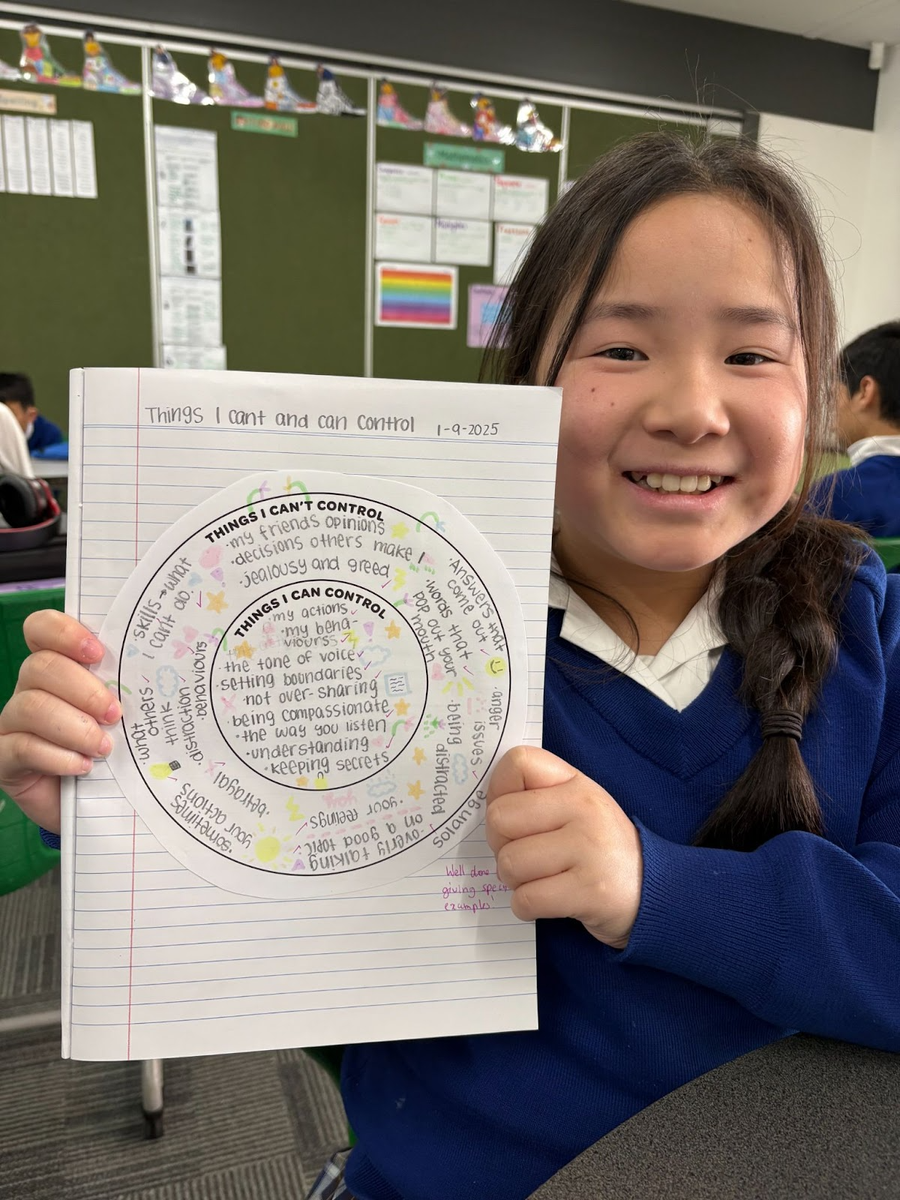 Things I cant and can Control 1-9-2025
THINGS I CAN'T CONTROL
·my friends opinions
·decisions others make
·jealousy and greed
·Answers that
come out
·words that
pop out your
mouth
·anger issues
·being distracted
solange
·overly talking
on a good topic
·your feelings
·betrayal
·sometimes
your actions
·what
others
think
·distraction
·behaviours
·skills → what
I can't do
THINGS I CAN CONTROL
·my actions
·my beha-
viours
·the tone of voice
·setting boundaries
·not over-sharing
·being compassionate
·the way you listen
·understanding
·keeping secrets
Well done
giving
examples!